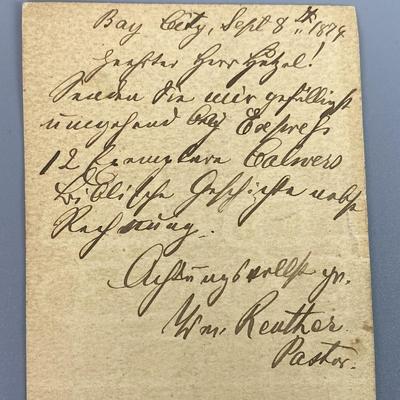 Bay City, Sept 8th 1879
Geehrter Herr Hützel!
Senden Sie mir gefälligst
umgehend by Express
12 Exemplare Calwers
Biblische Geschichte nebst
Rechnung.
Achtungsvollst
Wm. Reuther.
Pastor.